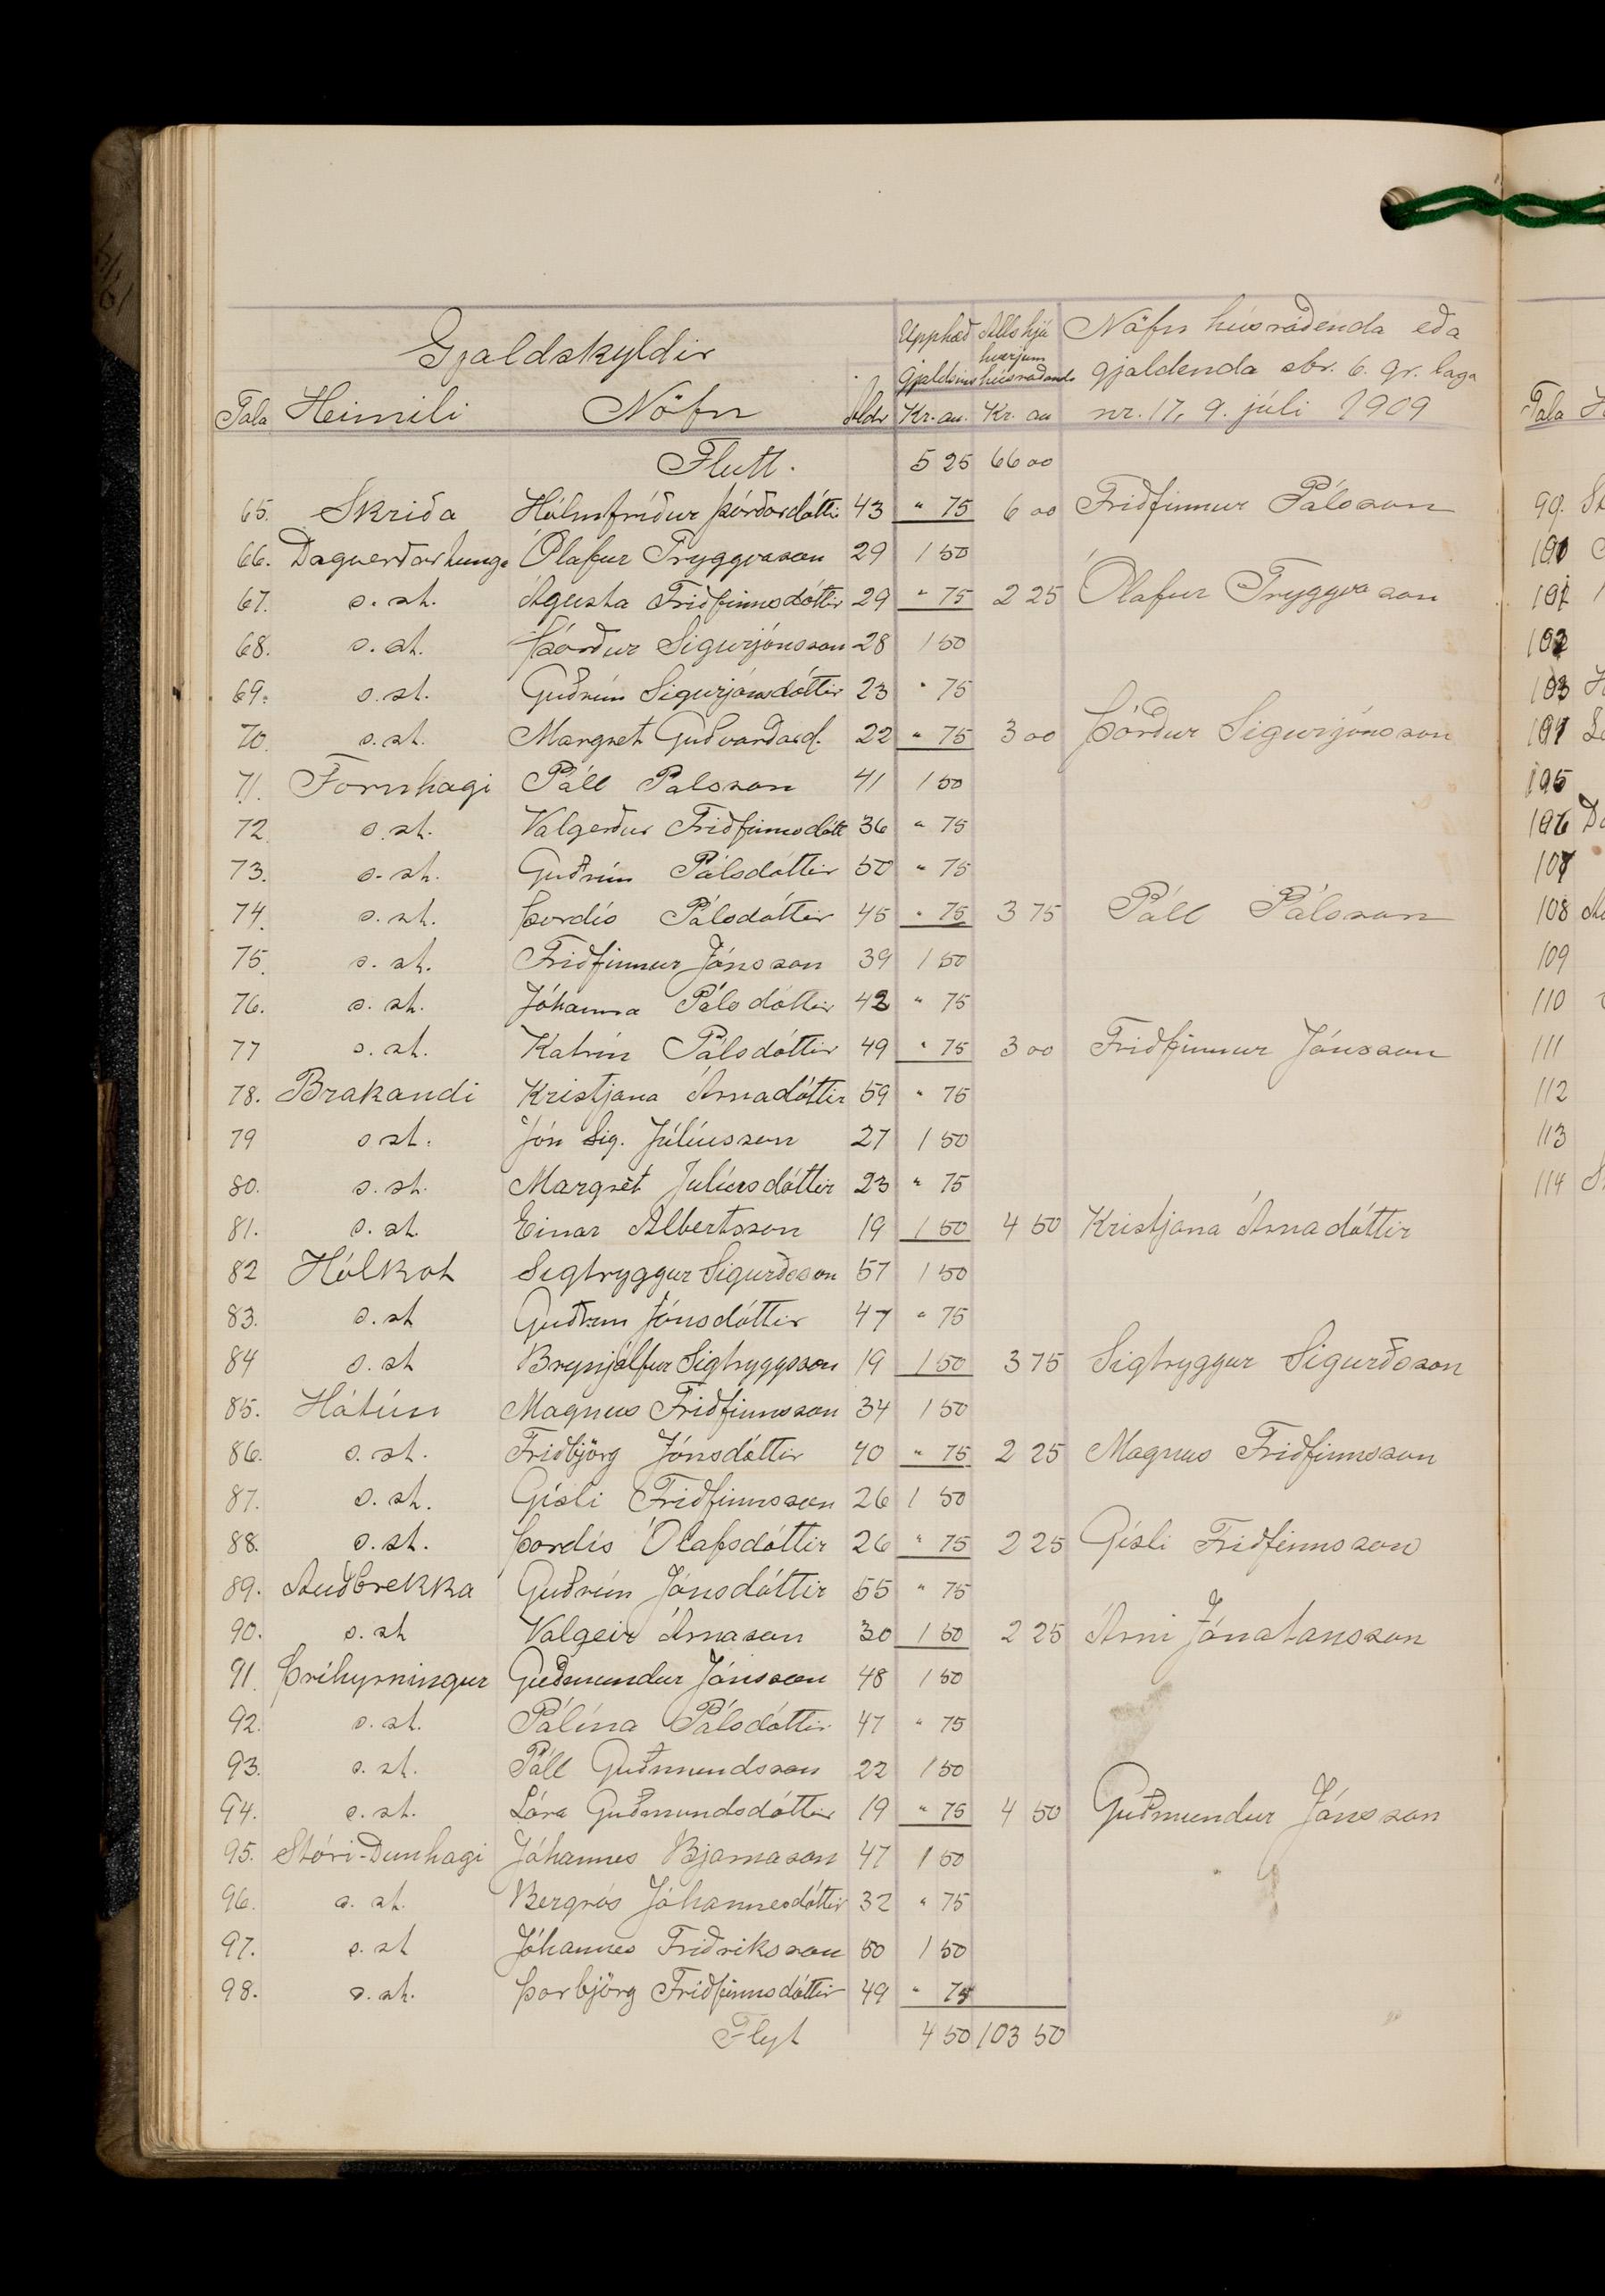 Gjaldskyldir Upphæð Alls hjá Nöfn húsráðenda eða
hverjum
gjaldsins húsráðanda gjaldenda sbr. 6. gr. laga
Tala Heimili Nöfn Aldr Kr. au. Kr. au nr. 17, 9. júlí 1909
Flutt. 5 25 66 00
65. Skriða Hólmfríður Þórðardóttir 43 " 75 6 00 Friðfinnur Pálsson
66. Dagverðartunga Ólafur Tryggvason 29 1 50
67. s. st. Ágústa Friðfinnsdóttir 29 " 75 2 25 Ólafur Tryggvason
68. s. st. Þórður Sigurjónsson 28 1 50
69. s. st. Guðrún Sigurjónsdóttir 23 " 75
70. s. st. Margret Guðvarðard. 22 " 75 3 00 Þórður Sigurjónsson
71. Fornhagi Páll Palsson 41 1 50
72. s. st. Valgerður Friðfinnsdótt 36 " 75
73. s. st. Guðrún Pálsdóttir 50 " 75
74. s. st. Þordís Pálsdóttir 45 " 75 3 75 Páll Pálsson
75. s. st. Friðfinnur Jónsson 39 1 50
76. s. st. Jóhanna Pálsdóttir 43 " 75
77 s. st. Katrín Pálsdóttir 49 " 75 3 00 Friðfinnur Jónsson
78. Brakandi Kristjana Árnadóttir 59 " 75
79 s st. Jón Sig. Júlíusson 27 1 50
80. s. st. Margrét Julíusdóttir 23 " 75
81. s. st. Einar Albertsson 19 1 50 4 50 Kristjana Árnadóttir
82 Hólkot Sigtryggur Sigurðsson 57 1 50
83. s. st Guðrun Jónsdóttir 47 " 75
84 s. st Brynjólfur Sigtryggsson 19 1 50 3 75 Sigtryggur Sigurðsson
85. Hátún Magnus Friðfinnsson 34 1 50
86. s. st. Friðbjörg Jónsdóttir 40 " 75 2 25 Magnus Friðfinnsson
87. s. st. Gísli Friðfinnsson 26 1 50
88. s. st. Þordís Ólafsdóttir 26 " 75 2 25 Gísli Friðfinnsson
89. Auðbrekka Guðrún Jónsdóttir 55 " 75
90. s. st Valgeir Árnason 30 1 50 2 25 Árni Jónatansson
91. Þríhyrningur Guðmundur Jónsson 48 1 50
92. s. st. Pálína Pálsdóttir 47 " 75
93. s. st. Páll Guðmundsson 22 1 50
94. s. st. Lára Guðmundsdóttir 19 " 75 4 50 Guðmundur Jónsson
95. Stóri-Dunhagi Jóhannes Bjarnason 47 1 50
96. s. st. Bergrós Jóhannesdóttir 32 " 75
97. s. st Jóhannes Friðriksson 50 1 50
98. s. st. Þorbjörg Friðfinnsdóttir 49 " 75
Flyt 4 50 103 50
Tala
99.
100
101
102
103
104
105
106
107
108
109
110
111
112
113
114